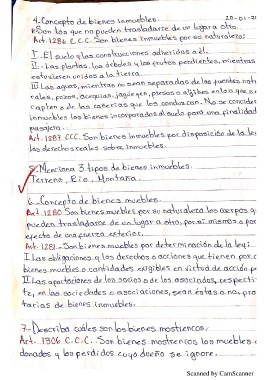 4. Concepto de bienes inmuebles. 20-01-21
R= Son los que no pueden trasladarse de un lugar a otro.
Art. 1286 C.C.C. Son bienes inmuebles por su naturaleza:
I. El suelo y las construcciones adheridas a él.
II. Las plantas, los árboles y los frutos pendientes, mientras
estuviesen unidos a la tierra
III Las aguas, mientras no sean separadas de las fuentes, natu
rales, pozos, acequias, jagüeyes, presas o aljibes en lo que se
capten o de las cañerías que las conduzcan. No se consider
inmuebles los bienes incorporados al suelo para una finalidad
pasajera.
Art. 1287 CCC. Son bienes inmuebles por disposición de la ley
los derechos reales sobre inmuebles.
5. Menciona 3 tipos de bienes inmuebles.
Terreno, Rio, Montaña
6. Concepto de bienes muebles.
Art. 1280 Son bienes muebles por su naturaleza los cuerpos q
pueden trasladarse de un lugar a otro, por sí mismos o por
efecto de una fuerza exterior.
Art. 1281.- Son bienes muebles por determinación de la ley:
I Las obligaciones y los derechos o acciones que tienen por c
bienes muebles o cantidades exigibles en virtud de acción p
II Las aportaciones de los socios o de los asociados, respecti
te, en las sociedades o asociaciones, sean éstas o no pro
tarias de bienes inmuebles.
7.- Describa cuáles son los bienes mostrencos.
Art. 1306 C.C.C. Son bienes mostrencos los muebles
donados y los perdidos cuyo dueño se ignore.
Scanned by CamScanner